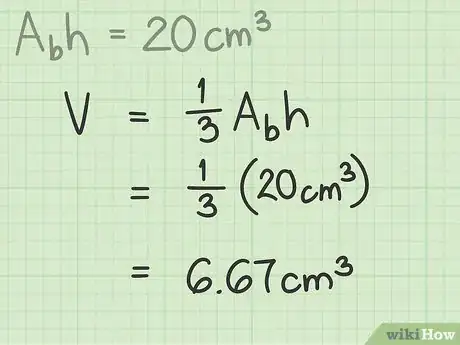 A_b h = 20 cm³
V = 1/3 A_b h
= 1/3 (20 cm³)
= 6.67 cm³
wikiHow